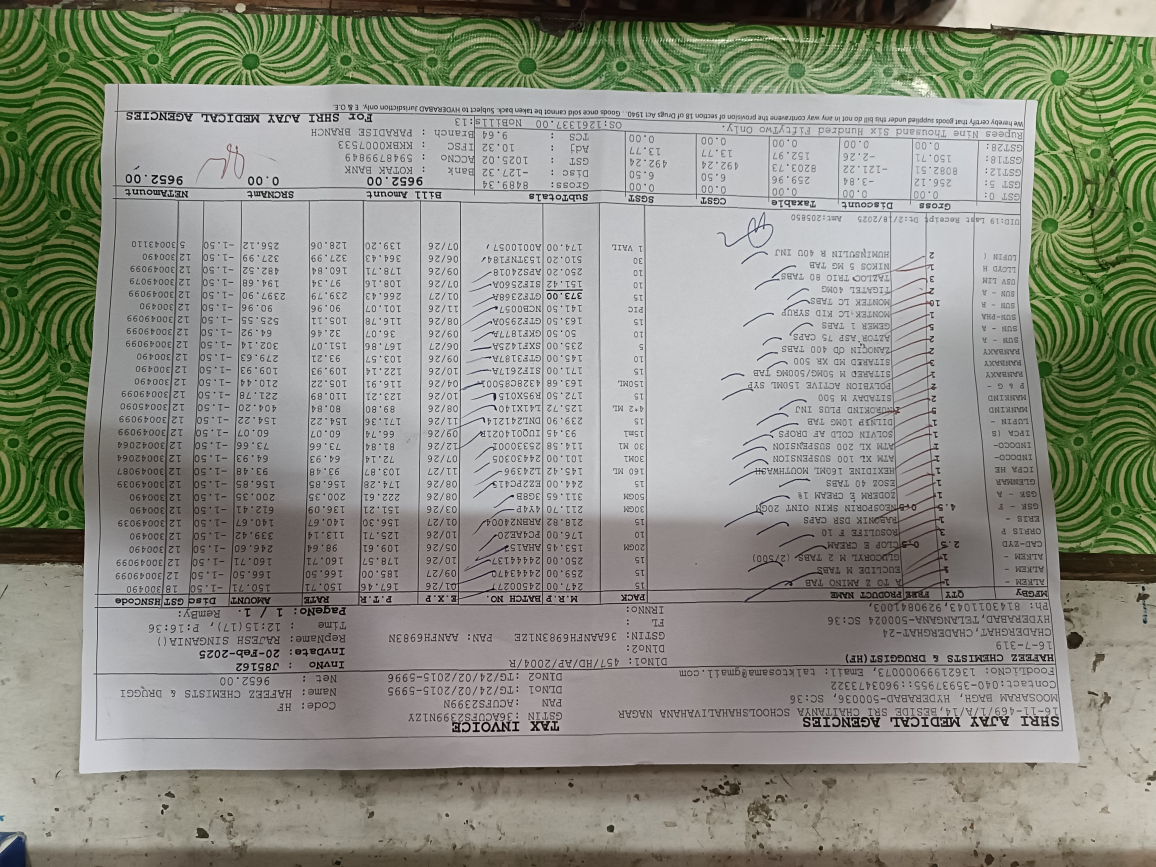 SHRI AJAY MEDICAL AGENCIES
16-11-469/1/A/14, BESIDE SRI CHAITANYA SCHOOLSHALIVAHANA NAGAR
MOOSARAM BAGH, HYDERABAD-500036, SC:36
Contact:040-35937955::9603473322
FoodLicNo: 13621999000073, Email: talktosama@gmail.com
TAX INVOICE
GSTIN :36ACUFS2399N1ZY
PAN : ACUFS2399N
DLNO1 : TG/24/02/2015-5995
DLNO2 : TG/24/02/2015-5996
Code: HF
Name: HAFEEZ CHEMISTS & DRUGGI
Net : 9652.00
HAFEEZ CHEMISTS & DRUGGIST(HF)
16-7-319
CHADERGHAT, CHADERGHAT-24
HYDERABAD, TELANGANA-500024 SC:36
Ph: 8143011043,9290841003,
DLNO1: 457/HD/AP/2004/R
DLNO2:
GSTIN: 36AANFH6983N1ZE PAN: AANFH6983N
FL :
IRNO:
InvNo : J85162
InvDate: 20-Feb-2025
RepName: RAJESH SINGANIA()
Time : 12:15(17), P:16:36
PageNo: 1 / 1. RemBy:
MFGBY QTY FREE PRODUCT NAME PACK M.R.P BATCH NO. E.X.P P.T.R RATE AMOUNT Disc GST HSNCode
ALKEM - 1 A TO Z AMINO TAB 15 247.00 24500277 01/26 167.46 150.71 150.71 -1.50 18 300490
ALKEM - 1 EUCLIDE M TABS 15 259.00 24443470 09/27 185.00 166.50 166.50 -1.50 12 30049099
ALKEM - 1 GLUCORYL M 2 TABS (2/500) 15 250.00 24441437 10/26 178.57 160.71 160.71 -1.50 12 300490
CAD-ZYD 2.5 0.5 CLOP E CREAM 20GM 153.45 AHA1515 05/26 109.61 98.64 246.60 -1.50 12 300490
ORRIS P 3 ROSULESS F 10 10 176.00 PC4AE20 10/26 125.71 113.14 339.42 -1.50 12 300490
ERIS - 1 RABONIK DSR CAPS 15 218.82 ARNB24004 01/27 156.30 140.67 140.67 -1.50 12 30049039
GSK - F 4.5 0.5 NEOSPORIN SKIN OINT 20GM 30GM 211.70 4Y4P 03/26 151.21 136.09 612.41 -1.50 12 300490
GSK - A 1 ZODERM E CREAM 1% 50GM 311.65 3G8B 08/26 222.61 200.35 200.35 -1.50 12 300490
GLENMAR 1 ESOZ 40 TABS 15 244.00 E22PC413 08/26 174.28 156.85 156.85 -1.50 12 30049039
ICPA HE 1 HEXIDINE 160ML MOUTHWASH 160 ML 145.42 L24396 11/27 103.87 93.48 93.48 -1.50 12 30049087
INDOCO- 1 ATM XL 100 SUSPENSION 30ML 101.00 2443005 07/26 72.14 64.93 64.93 -1.50 12 30042064
INDOCO- 1 ATM XL 200 SUSPENSION 30 ML 114.58 25330001 12/26 81.84 73.66 73.66 -1.50 12 30042064
IPCA (S 1 SOLVIN COLD AF DROPS 15ml 93.45 IUQ014021R 09/26 66.74 60.07 60.07 -1.50 12 30049099
MANKIND 1 DILNIP 10MG TAB 15 239.90 DNL241214 10/26 171.36 154.22 154.22 -1.50 12 30049099
MANKIND 5 NUROKIND PLUS INJ 4*2 ML 125.72 L41X140 08/26 89.80 80.84 404.20 -1.50 12 30045090
MANKIND 2 SITARAY M 500 15 172.50 R95X015 10/26 123.21 110.89 221.78 -1.50 12 300490
P & G - 2 POLYBION ACTIVE 150ML SYP 150ML 163.68 4328C85001 04/26 116.91 105.22 210.44 -1.50 12 300490
RANBAXY 1 SITARED M 50MG/500MG TAB 15 171.00 SIF2617A 10/26 122.14 109.93 109.93 -1.50 12 300490
RANBAXY 3 SITARED MD XR 500 10 145.00 GTF3187A 09/26 103.57 93.21 279.63 -1.50 12 300490
RANBAXY 2 ZANOCIN OD 400 TABS 5 235.00 SXF1425A 06/27 167.86 151.07 302.14 -1.50 12 30049099
SUN - A 2 AZTOR ASP 75 CAPS. 10 50.50 GKF1877A 09/26 36.07 32.46 64.92 -1.50 12 30049099
SUN - A 5 GEMER 1 TABS 15 163.50 GTF2950A 08/26 116.78 105.11 525.55 -1.50 12 30049099
SUN-PHA 1 MONTEK LC KID SYRUP PIC 141.50 NCB0057 11/26 101.07 90.96 90.96 -1.50 12 300490
SUN - R 10 MONTEK LC TABS 15 373.00 GTF2368A 01/27 266.43 239.79 2397.90 -1.50 12 30049099
SUN - A 2 TIGATEL 40MG 10 151.42 SIF2560A 07/26 108.16 97.34 194.68 -1.50 12 30049079
USV LIM 3 TAZLOC TRIO 80 TABS 10 250.20 APS24018 09/26 178.71 160.84 482.52 -1.50 12 30049099
LLOYD H 1 NIKOS 5 MG TAB 30 510.20 1S3TNF184 06/26 364.43 327.99 327.99 -1.50 12 300490
LUPIN ( 2 HUMINSULIN R 40U INJ 1 VAIL 174.00 A0010057 07/26 139.20 128.06 256.12 -1.50 5 30043110
UID:19 Last Receipt Dt:2/18/2025 Amt:205850
Gross Discount Taxable CGST SGST SubTotals Bill Amount SRCNAmt NETAmount
GST 0: 0.00 0.00 0.00 0.00 0.00 Gross: 8489.34 9652.00 0.00 9652.00
GST 5: 256.12 -3.84 259.96 6.50 6.50 Disc : -127.32 Bank : KOTAK BANK
GST12: 8082.51 -121.22 8203.73 492.24 492.24 GST : 1025.02 ACCNO : 5948799849
GST18: 150.71 -2.26 152.97 13.77 13.77 Adj : 10.32 IFSC : KKBK0007533
GST28: 0.00 0.00 0.00 0.00 0.00 TCS : 9.64 Branch : PARADISE BRANCH
Rupees Nine Thousand Six Hundred FiftyTwo Only. OS:1261337.00 NOBill118:13 For SHRI AJAY MEDICAL AGENCIES
We hereby certify that goods supplied under this bill do not in any way contravene the provision of section 18 of Drugs Act 1940. Goods once sold cannot be taken back. Subject to HYDERABAD Jurisdiction only. E & O.E.